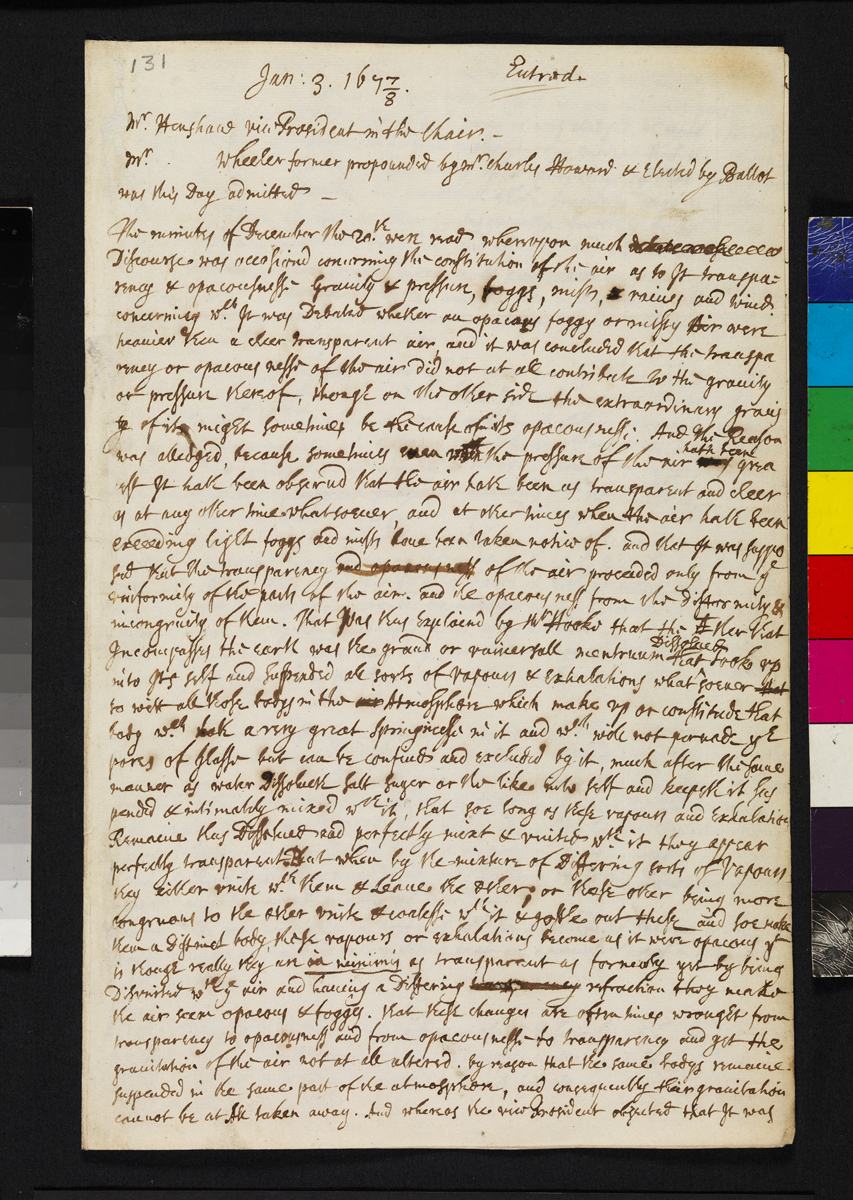 131
Jan: 3. 167 7/8. Entred.
Mr. Henshaw vice President in the Chair. —
Mr. Wheeler former propounded by mr. Charles Howard & Elected by Ballot
was this Day admitted —
The minutes of December the 20th. were read whereupon much
Discourse was occasiond concerning the constitution of the air as to It transpa-
rency & opacousnesse Gravity & pressure, foggs, mists, raines and winds
concerning wch It was Debated whether an opacous foggy or misty Air were
heavier then a cleer transparent air, and it was concluded that the transpa
rency or opacousnesse of the air did not at all contribute to the gravity
or pressure thereof, though on the other side the extraordinary gravi
ty of it might sometimes be the cause of its opacousnesse. And the Reason
was alledged, because sometimes when the pressure of the air hath been grea
test It hath been observd that the air hath been as transparent and cleer
as at any other time whatsoever, and at other times when the air hath been
exceeding light foggs and mists have been taken notice of. and that It was suppo
sed that the transparency and opacousness of the air proceeded only from ye
uniformity of the parts of the air. and the opacousness from the Difformity &
incongruity of them. That was thus Explaind by Mr Hooke that the Æther that
Incompasses the earth was the grand or universall menstruum that Dissolved took up
into Its self and suspended all sorts of vapours & exhalations whatsoever that
so with all those bodys in the air Atmosphere which make up or constitude that
body wch hath a very great springinesse in it and wch will not pervade ye
pores of Glasse but can be confind and excluded by it, much after the same
manner as water Dissolveth salt suger or the like into self and keepeth it sus
pended & intimately mixed wth it, that soe long as these vapours and Exhalation
Remaine thus Dissolued and perfectly mixt & united wth it they appear
perfectly transparent. But when by the mixture of Differing sorts of Vapours
they either unite wth them & Leave the other, or these other being more
congruous to the other unite & coalesse wth it & Iostle out these and soe make
them a Distinct body those vapours or exhalations become as it were opacous yt
is though really they are in minimis as transparent as formerly yet by being
Disunited wth ye air and having a Differing refraction they make
the air seem opacous & foggy. that these changes are oftentimes wrought from
transparency to opacousness and from opacousnesse to transparency and yet the
gravitation of the air not at all altered. by reason that the same bodys remaine
suspended in the same part of the atmosphere, and consequently their gravitation
cannot be at All taken away. And whereas the vice President objected that It was